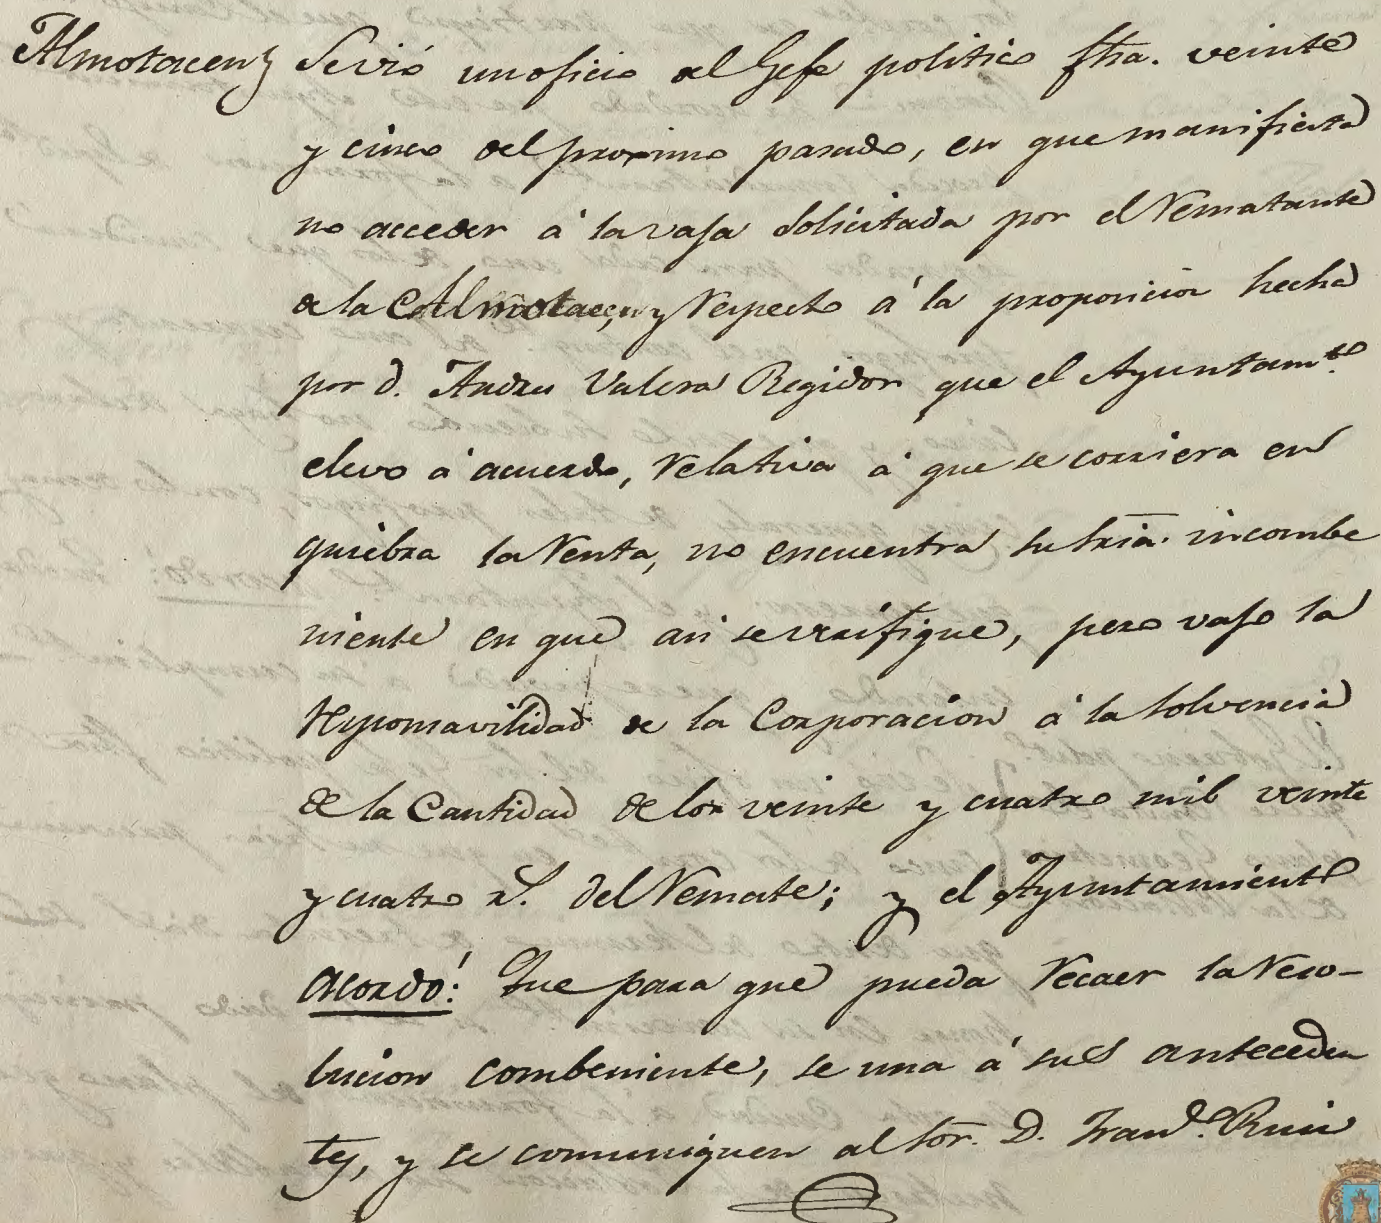 Almotacen} Se vió un oficio del Gefe politico fha. veinte
y cinco del proximo pasado, en que manifiesta
no acceder á la vaja solicitada por el Rematante
de la Almotacen, y respecto á la proposicion hecha
por d. Andres Valera Regidor que el Ayuntam.to
elevo á acuerdo, relativa á que se corriera en
quiebra la Renta, no encuentra su sria. incombe
niente en que asi se verifique, pero vajo la
responsavilidad de la Corporacion á la solvencia
de la Cantidad de los veinte y cuatro mil veinte
y cuatro r.s del Remate; y el Ayuntamiento
Acordó: Que para que pueda recaer la reso-
lucion combeniente, se una á sus anteceden
tes, y se comuniquen al Sor. D. Fran.co Ruiz